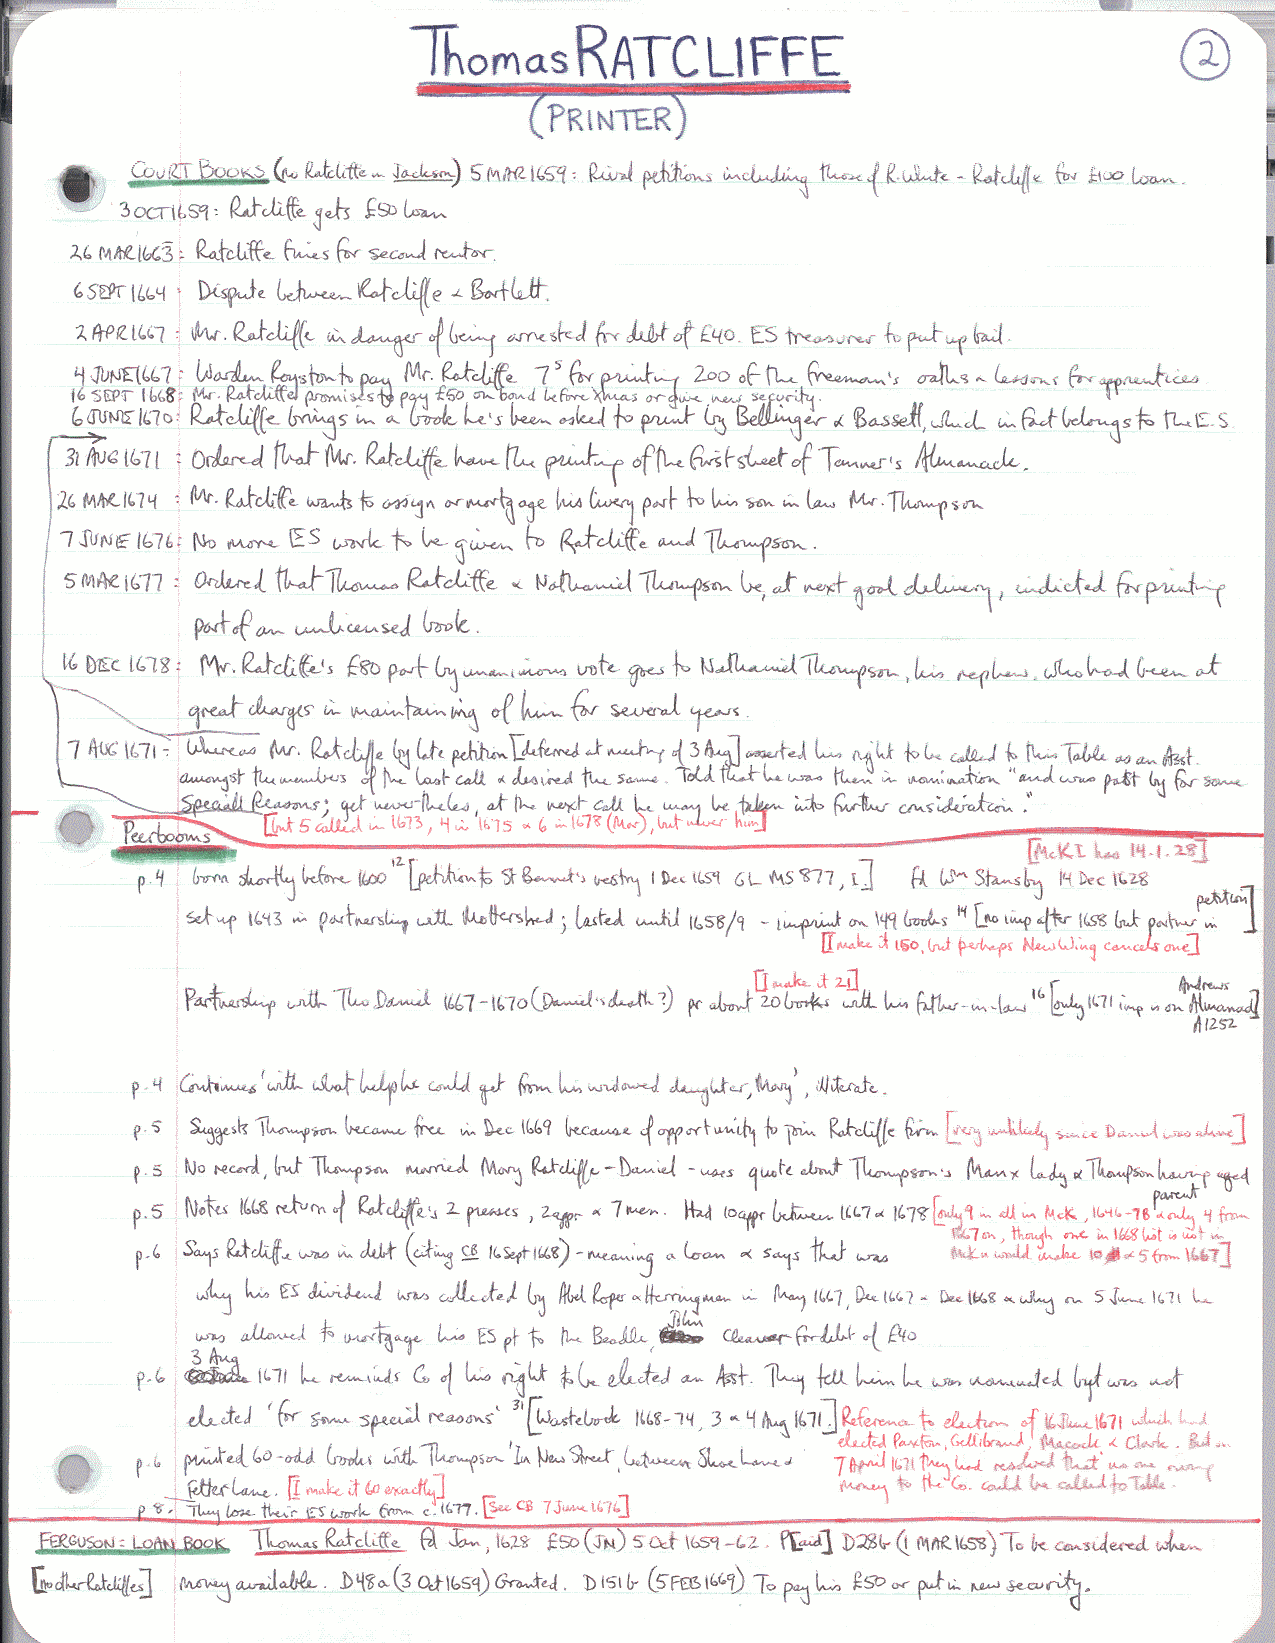 Thomas RATCLIFFE
2
(PRINTER)
COURT BOOKS (no Ratcliffe in Jackson) 5 MAR 1659: Rival petitions including those of R. White - Ratcliffe for £100 loan.
3 OCT 1659: Ratcliffe gets £50 loan
26 MAR 1663: Ratcliffe fines for second rentor.
6 SEPT 1664: Dispute between Ratcliffe & Bartlett.
2 APR 1667: Mr. Ratcliffe in danger of being arrested for debt of £40. ES treasurer to put up bail.
4 JUNE 1667: Warden Royston to pay Mr. Ratcliffe 7s for printing 200 of the freeman's oaths & lessons for apprentices
16 SEPT 1668: Mr. Ratcliffe promises to pay £50 on bond before Xmas or give new security.
6 JUNE 1670: Ratcliffe brings in a book he's been asked to print by Bellinger & Bassett, which in fact belongs to the E.S.
31 AUG 1671: Ordered that Mr. Ratcliffe have the printing of the first sheet of Tanner's Almanack.
26 MAR 1674: Mr. Ratcliffe wants to assign or mortgage his livery part to his son in law Mr. Thompson
7 JUNE 1676: No more ES work to be given to Ratcliffe and Thompson.
5 MAR 1677: Ordered that Thomas Ratcliffe & Nathaniel Thompson be, at next gaol delivery, indicted for printing
part of an unlicensed book.
16 DEC 1678: Mr. Ratcliffe's £80 part by unanimous vote goes to Nathaniel Thompson, his nephew, who had been at
great charges in maintaining of him for several years.
7 AUG 1671: Whereas Mr. Ratcliffe by late petition [deferred at meeting of 3 Aug] asserted his right to be called to this Table as an Asst.
amongst the members of the last call & desired the same. Told that he was then in nomination "and was past by for some
Speciall Reasons; yet never-theles, at the next call he may be taken into further consideration."
[but 5 called in 1673, 4 in 1675 & 6 in 1678 (Mar), but never him]
Peerbooms
[McKI has 14.1.28]
p.4 born shortly before 1600 12 [petition to St Bennet's vestry 1 Dec 1659 GL MS 877, I.] fd Wm Stansby 14 Dec 1628
petition]
Set up 1643 in partnership with Mottershed; lasted until 1658/9 - imprint on 149 books 14 [no imp after 1658 but partner in
[I make it 150, but perhaps New Wing cancels one]
[I make it 21]
Andrews
Partnership with Tho Daniel 1667-1670 (Daniel's death?) pr about 20 books with his father-in-law 16 [only 1671 imp is on Almanack]
A1252
p.4 Continues 'with what help he could get from his widowed daughter, Mary', illiterate.
p.5 Suggests Thompson became free in Dec 1669 because of opportunity to join Ratcliffe firm [very unlikely since Daniel was alive]
p.5 No record, but Thompson married Mary Ratcliffe-Daniel - uses quote about Thompson's Manx lady & Thompson having aged
parent
p.5 Notes 1668 return of Ratcliffe's 2 presses, 2 appr & 7 men. Had 10 appr between 1667 & 1678 [only 9 in all in McK, 1646-78 & only 4 from
1667 on, though one in 1668 list is not in
p.6 Says Ratcliffe was in debt (citing CB 16 Sept 1668) - meaning a loan & says that was
McK & would make 10 & 5 from 1667]
why his ES dividend was collected by Abel Roper & Herringman in May 1667, Dec 1667 & Dec 1668 & why on 5 June 1671 he
John
was allowed to mortgage his ES pt to the Beadle, Cleaver for debt of £40
3 Aug
p.6 1671 he reminds Co of his right to be elected an Asst. They tell him he was nominated but was not
elected 'for some special reasons' 31 [Wastebook 1668-74, 3 & 4 Aug 1671.] Reference to election of 16 June 1671 which had
elected Paxton, Gellibrand, Macock & Clark. But on
p.6 printed 60-odd books with Thompson 'In New Street, between Shoe Lane &
7 April 1671 they had resolved that no one owing
Fetter Lane. [I make it 60 exactly]
money to the Co. could be called to Table.
p 8. They lose their ES work from c. 1677. [See CB 7 June 1676]
FERGUSON: LOAN BOOK Thomas Ratcliffe fd Jan, 1628 £50 (JN) 5 Oct 1659-62. P[aid] D28b (1 MAR 1658) To be considered when
[no other Ratcliffes] money available. D48a (3 Oct 1659) Granted. D151b (5 FEB 1669) To pay his £50 or put in new security.